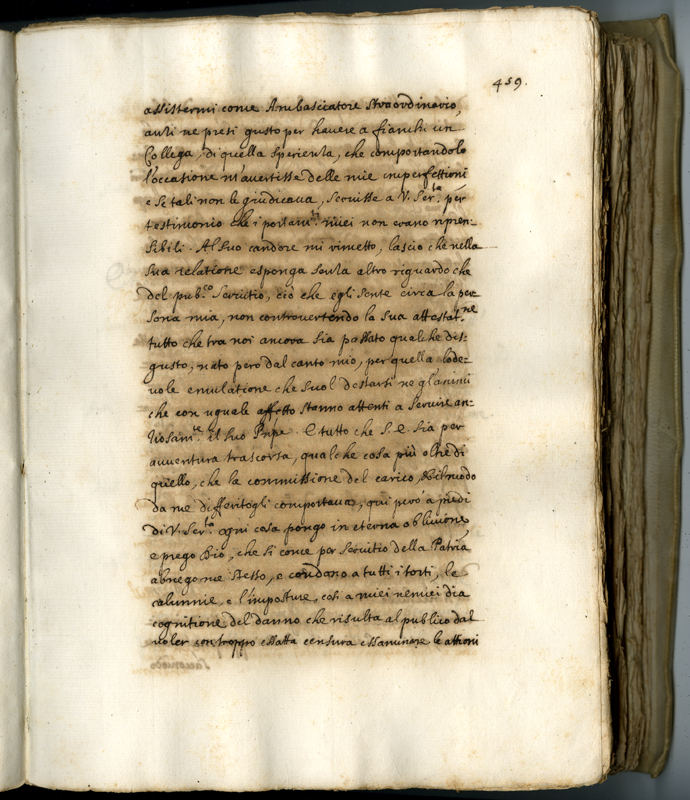 459.
assistermi come Ambasciatore Straordinario,
anzi ne presi gusto per hauere a fianchi un
Collega, di quella sperienza, che comportandolo
l'occasione m'auertisse delle mie imperfettioni
e se tali non le giudicaua, seruisse a V. Ser.tà per
testimonio che i portam.ti miei non erano ripren:
sibili. Al suo candore mi rimetto, lascio che nella
sua relatione esponga senza altro riguardo che
del pub.co Seruitio, ciò che egli sente circa la per
sona mia, non controuertendo la sua attestat.ne
tutto che tra noi ancora sia passato qualche dis:
gusto, nato però dal canto mio, per quella lode:
uole emulatione che suol destarsi ne gl'animi
che con uguale affetto stanno attenti a seruire an:
siosam.te il suo Pnpe. E tutto che S. E. sia per
auuentura trascorsa, qualche cosa più oltre di
quello, che la commissione del carico,
da me differitogli comportaua, qui però a piedi
di V. Ser.tà ogni cosa pongo in eterna obliuione
e prego Dio, che si come per seruitio della Patria
abnego me stesso, e condono a tutti i torti, le
calunnie, e l'imposture, così a miei nemici dia
cognitione del danno che risulta al publico dal
uoler con troppo esatta censura essaminare le attioni